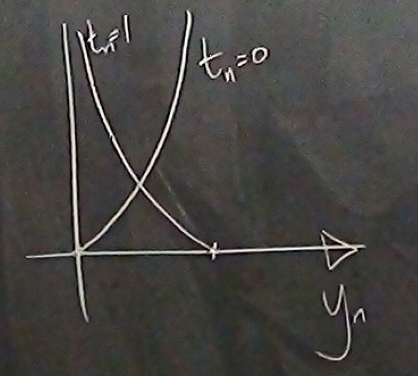 tₙ=1
tₙ=0
yₙ